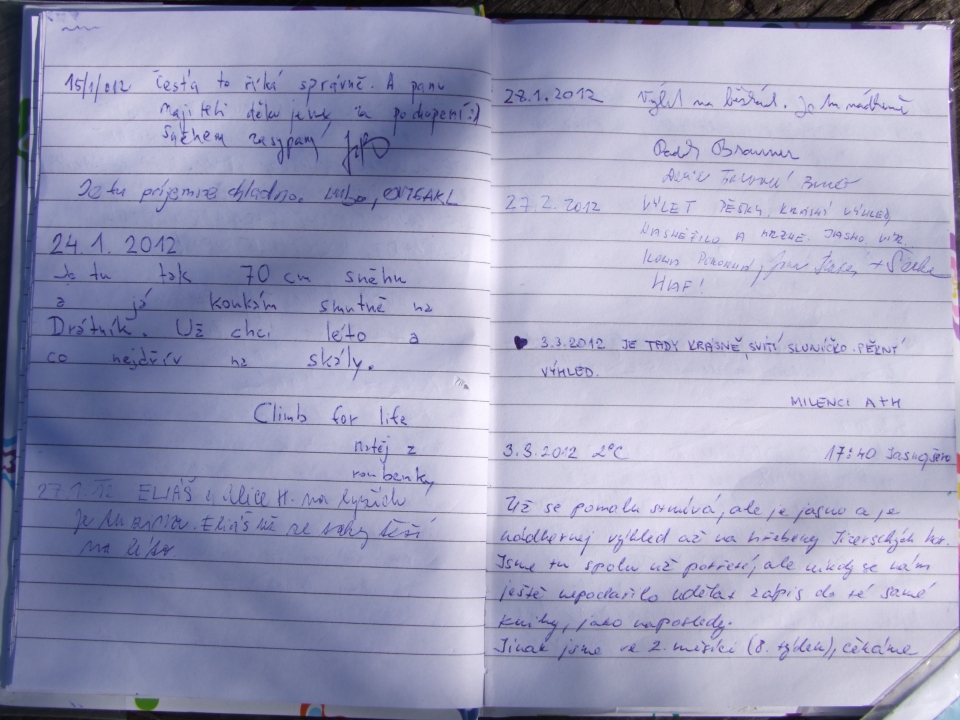 15/1/2012 Češťa to říká správně. A panu
majiteli děkujeme za pochopení :)
Sněhem zasypaný
Je tu příjemně chladno.
24.1.2012
Je tu tak 70 cm sněhu
a já koukám smutně na
Drátník. Už chci léto a
co nejdřív na skály.
Climb for life
Matěj z
roubenky
27.1.12 ELIÁŠ a Alice H. na lyžích
Je tu zima. Eliáš už se taky těší
na léto
28.1.2012 Výlet na běžkách. Je tu nádherně
27.2.2012 VÝLET PĚŠKY, KRÁSNÝ VÝHLED,
NASNĚŽILO A MRZNE. JASNO,
HAF!
3.3.2012 JE TADY KRÁSNĚ, SVÍTÍ SLUNÍČKO. PĚKNÝ
VÝHLED.
MILENCI A+H
3.3.2012 2°C 17:40 Jasno,
Už se pomalu stmívá, ale je jasno a je
nádhernej výhled až na hřebeny Jizerských hor.
Jsme tu spolu už potřetí, ale nikdy se nám
ještě nepodařilo udělat zápis do té samé
knihy, jako naposledy.
Jinak jsme ve 2. měsíci (8. týden), čekáme